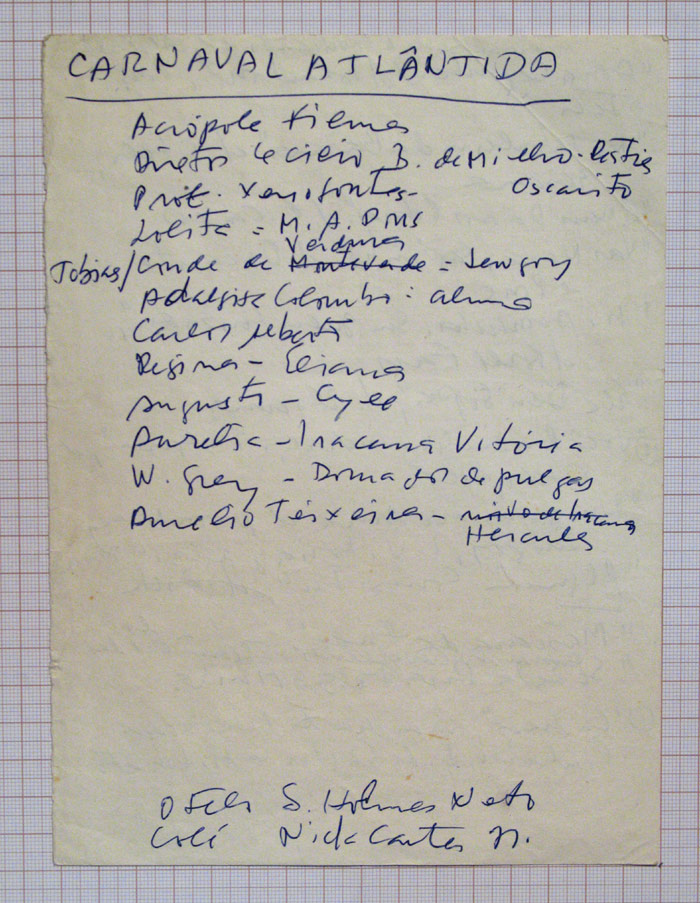 CARNAVAL ATLÂNTIDA
Acrópole Filmes
Diretor Cecilio B. de Milho - Réstier
Prof. Xenofontes - Oscarito
Lolita = M. A. Pons
Verduras
Tobias / Conde de Monteverde = Lewgoy
Adalgisa Colombo: aluna
Carlos Alberto
Regina - Eliana
Augusto - Cyll
Aurélia - Iracema Vitória
W. Grey - Domador de pulgas
Aurélio Teixeira - noivo de Iracema
Hércules
S. Holmes Neto
Colé Nick Carter Jr.